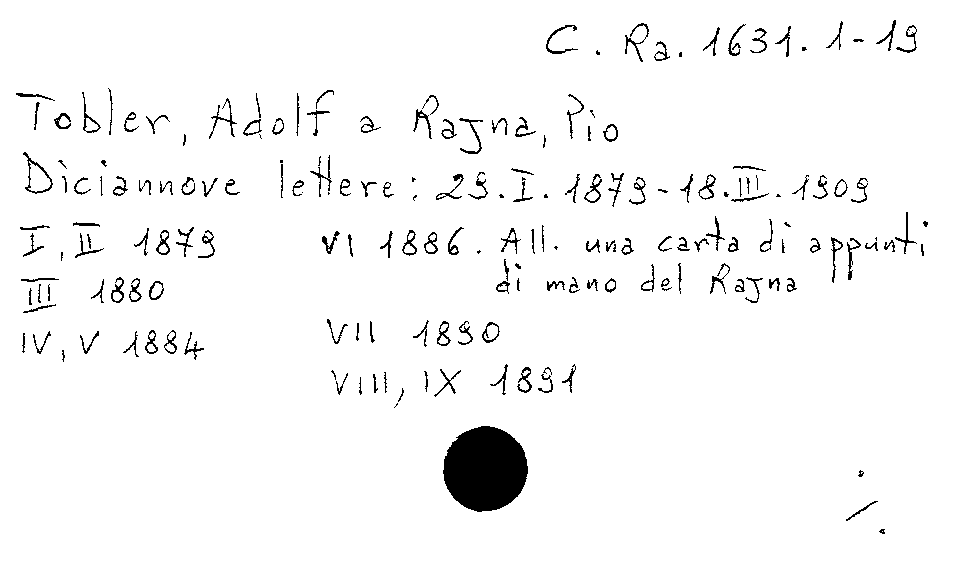 C. Ra. 1631. 1-19
Tobler, Adolf a Rajna, Pio
Diciannove lettere: 29.I.1879-18.III.1909
I, II 1879
III 1880
IV, V 1884
VI 1886. All. una carta di appunti
di mano del Rajna
VII 1890
VIII, IX 1891
./.